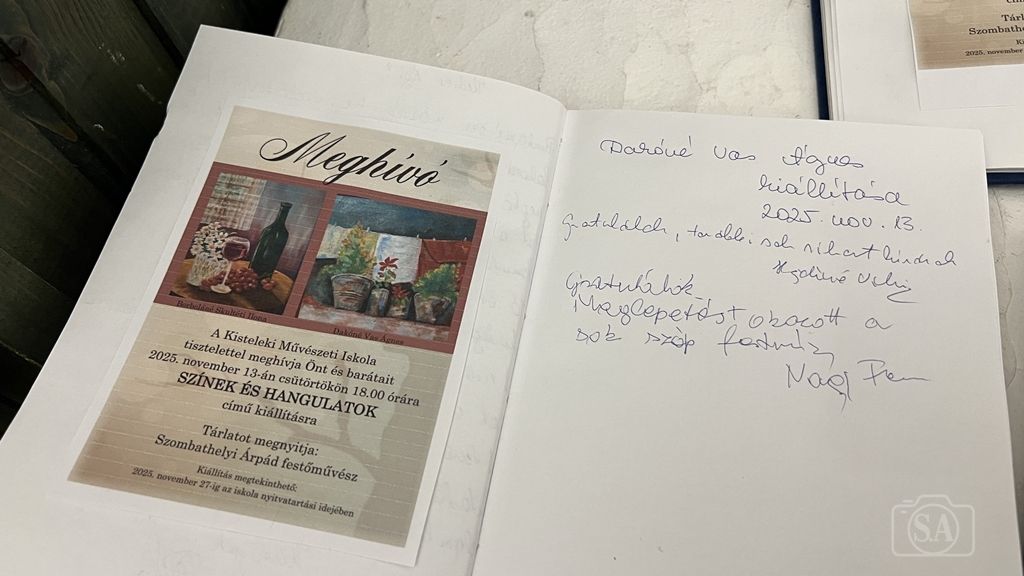 Meghívó
Borbélyné Skultéti Ilona
Dakóné Vas Ágnes
A Kisteleki Művészeti Iskola
tisztelettel meghívja Önt és barátait
2025. november 13-án csütörtökön 18.00 órára
SZÍNEK ÉS HANGULATOK
című kiállításra
Tárlatot megnyitja:
Szombathelyi Árpád festőművész
Kiállítás megtekinthető:
2025. november 27-ig az iskola nyitvatartási idejében
Daróné Vas Ágnes
kiállítása
2025. nov. 13.
Gratulálok, további sok sikert kívánok
Gratulálok
Meglepetést okozott a
sok szép
Nagy
Szombathe
2025. november
SA